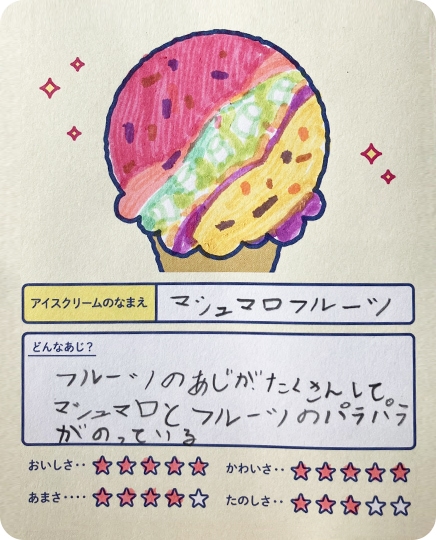 アイスクリームのなまえ マシュマロフルーツ
どんなあじ?
フルーツのあじがたくさんして。
マシュマロとフルーツのパラパラ
がのっている
おいしさ‥ ★★★★★ かわいさ‥ ★★★★★
あまさ‥‥ ★★★★☆ たのしさ‥ ★★★☆☆